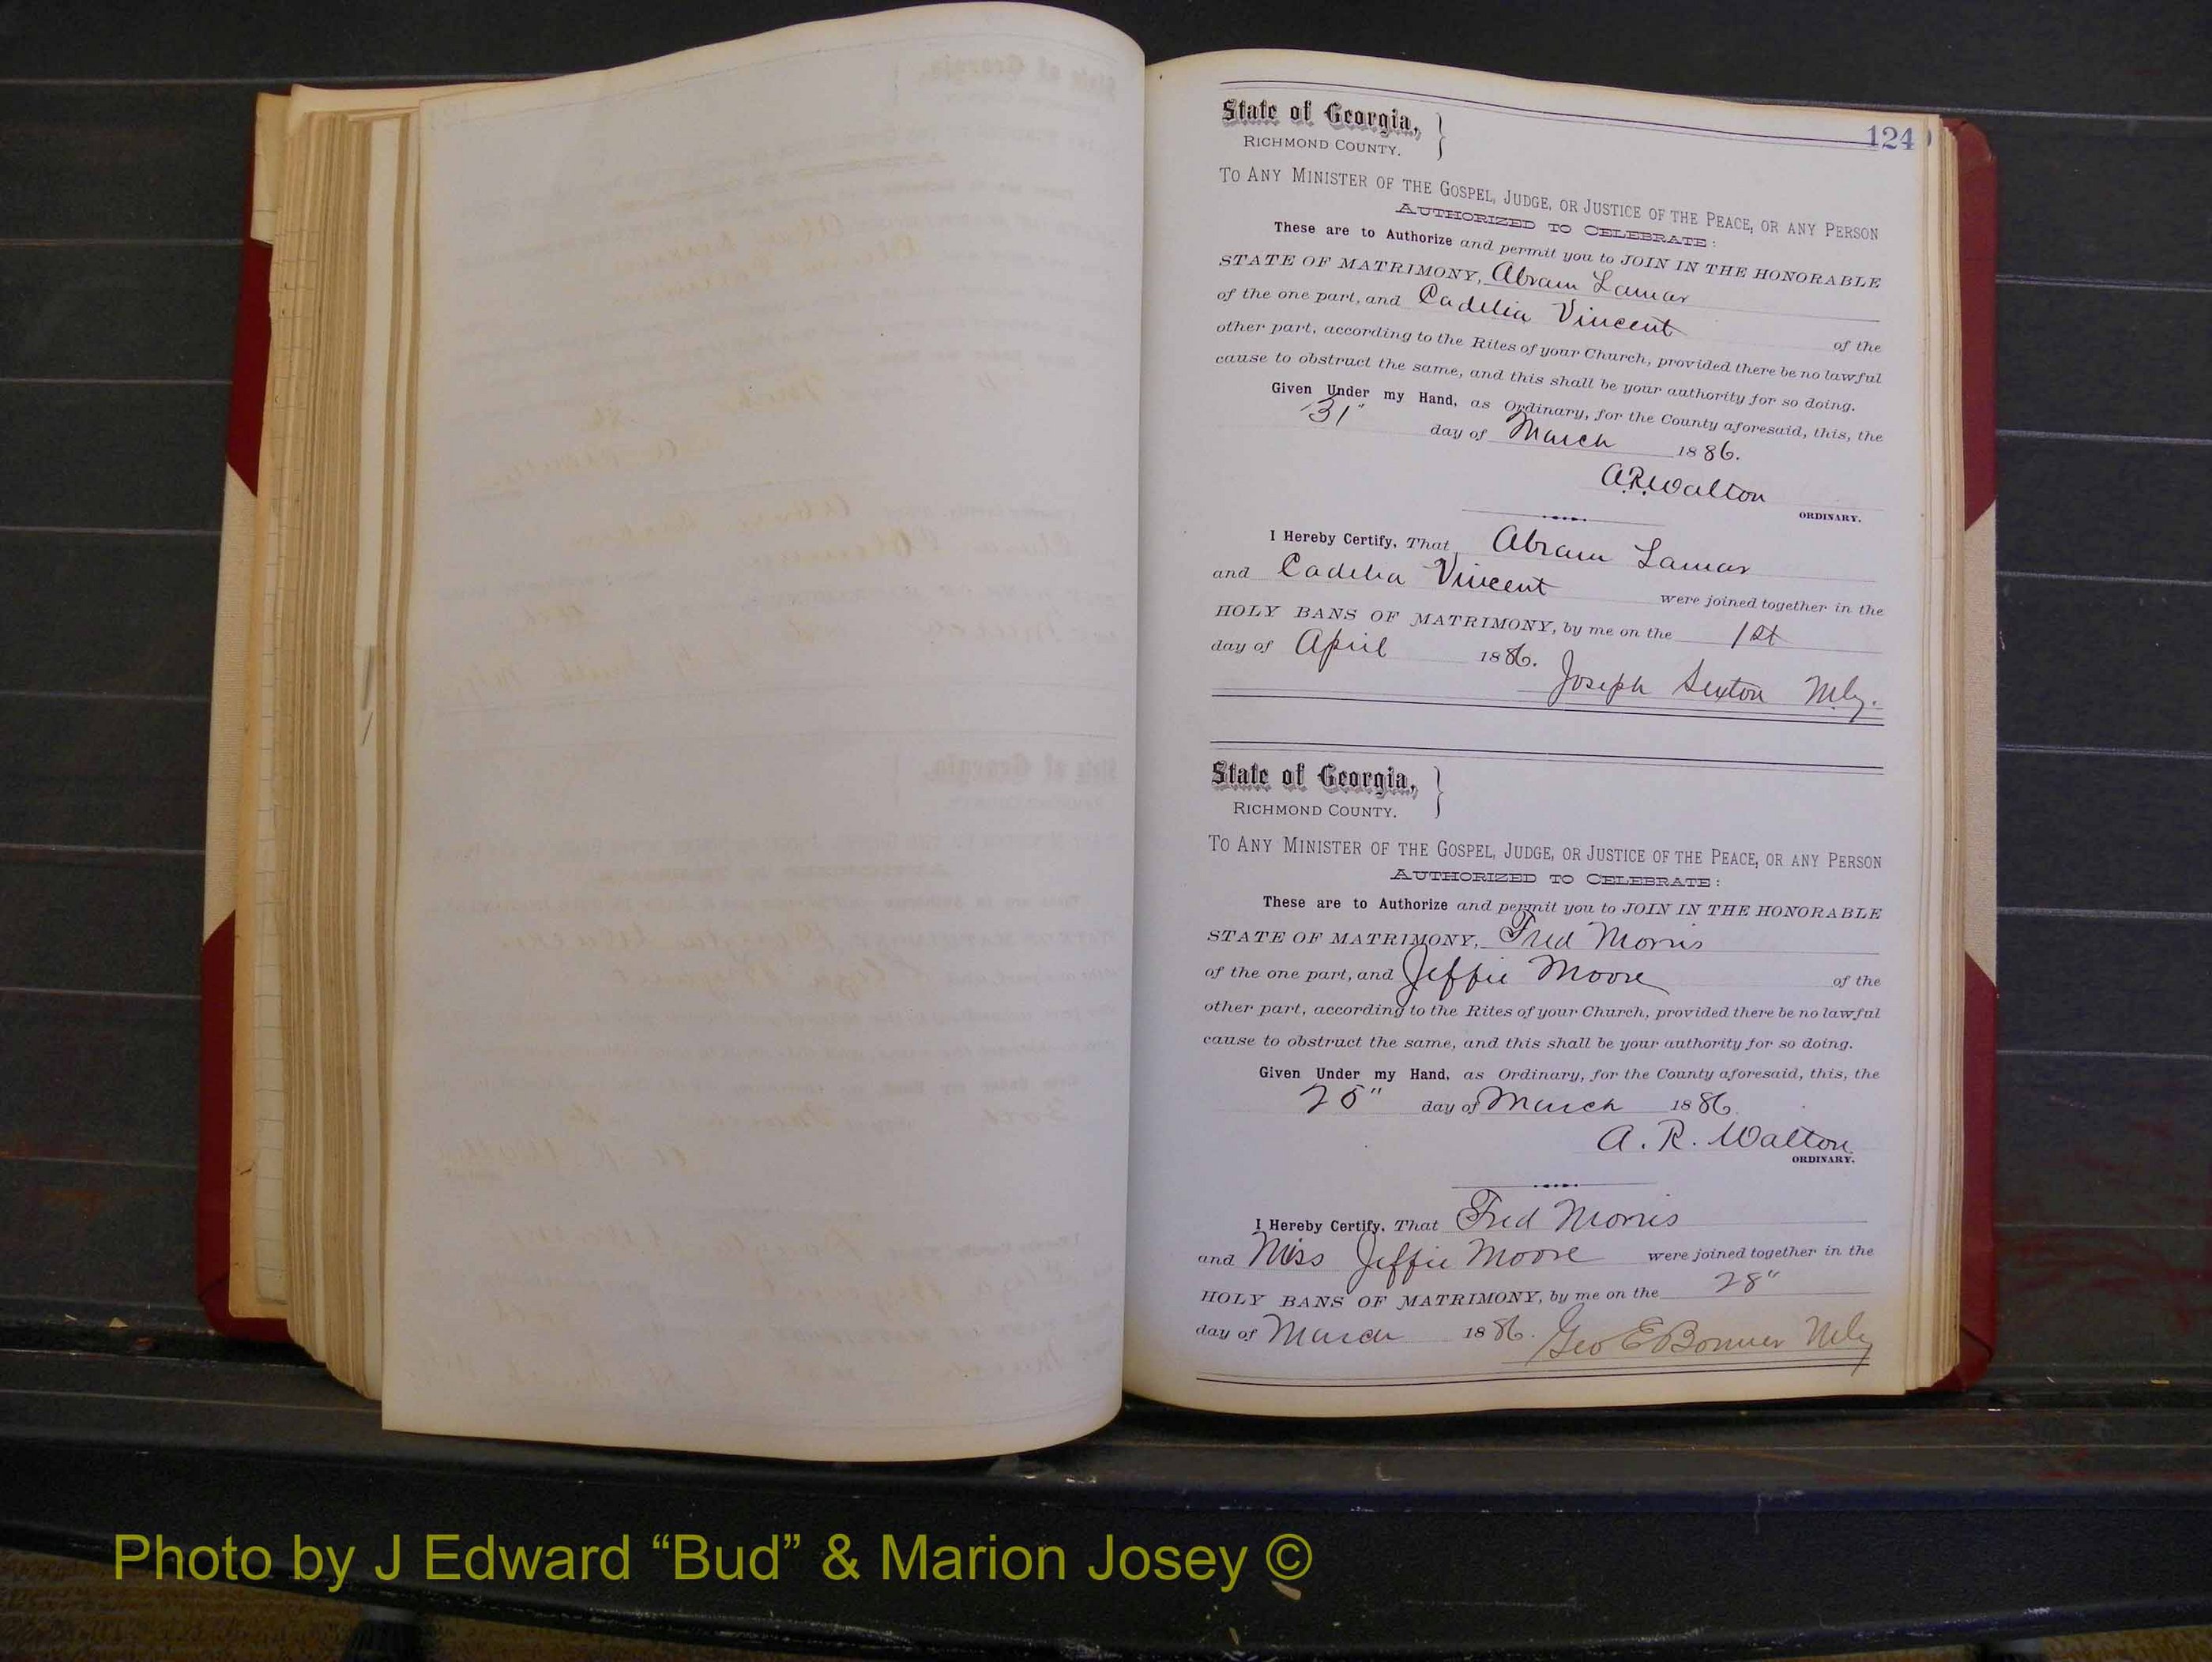 124
State of Georgia,
RICHMOND COUNTY.
TO ANY MINISTER OF THE GOSPEL, JUDGE, OR JUSTICE OF THE PEACE, OR ANY PERSON
AUTHORIZED TO CELEBRATE:
These are to Authorize and permit you to JOIN IN THE HONORABLE
STATE OF MATRIMONY, Abram Lamar
of the one part, and Cadelia Vincent
of the
other part, according to the Rites of your Church, provided there be no lawful
cause to obstruct the same, and this shall be your authority for so doing.
Given Under my Hand, as Ordinary, for the County aforesaid, this, the
31" day of March 1886.
A.R. Walton
ORDINARY.
I Hereby Certify, That Abram Lamar
and Cadelia Vincent were joined together in the
HOLY BANS OF MATRIMONY, by me on the 1st
day of April 1886. Joseph Sexton M.G.
State of Georgia,
RICHMOND COUNTY.
TO ANY MINISTER OF THE GOSPEL, JUDGE, OR JUSTICE OF THE PEACE, OR ANY PERSON
AUTHORIZED TO CELEBRATE:
These are to Authorize and permit you to JOIN IN THE HONORABLE
STATE OF MATRIMONY, Fred Morris
of the one part, and Jeffie Moore of the
other part, according to the Rites of your Church, provided there be no lawful
cause to obstruct the same, and this shall be your authority for so doing.
Given Under my Hand, as Ordinary, for the County aforesaid, this, the
25" day of March 1886.
A. R. Walton
ORDINARY.
I Hereby Certify, That Fred Morris
and Miss Jeffie Moore were joined together in the
HOLY BANS OF MATRIMONY, by me on the 28"
day of March 1886. Geo E Bonner M.G.
Photo by J Edward “Bud” & Marion Josey ©